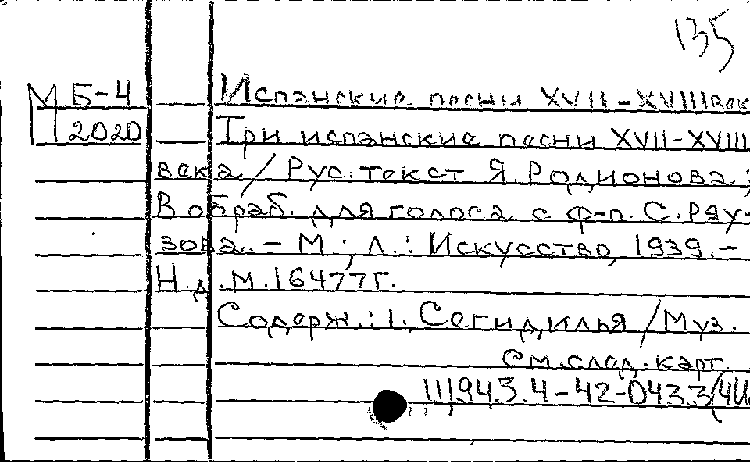 135
М Б-4 Испанские песни XVII-XVIII век
2020 Три испанские песни XVII-XVIII
века / Рус. текст Я. Родионова ;
В обраб. для голоса с ф-п. С. Рау-
зова. - М. ; Л. : Искусство, 1939. -
Н.д. М.16477г.
Содерж.: 1. Сегидилья / Муз.
См. след. карт.